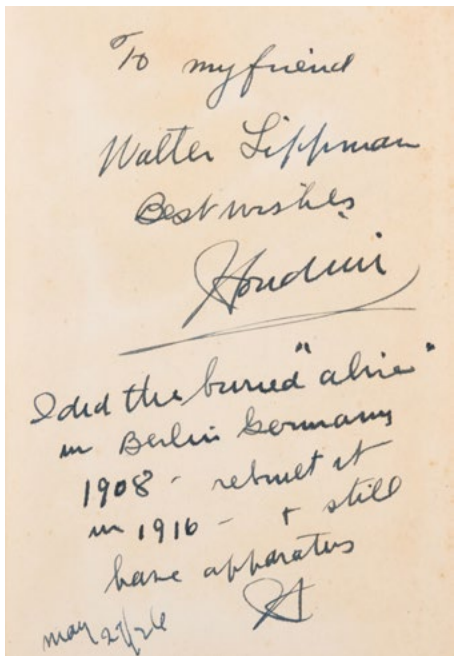 To my friend
Walter Lippman
Best wishes
Houdini
I did the buried "alive"
in Berlin Germany
1908 - rebuilt it
in 1916 - + still
have apparatus
H
May 27/26